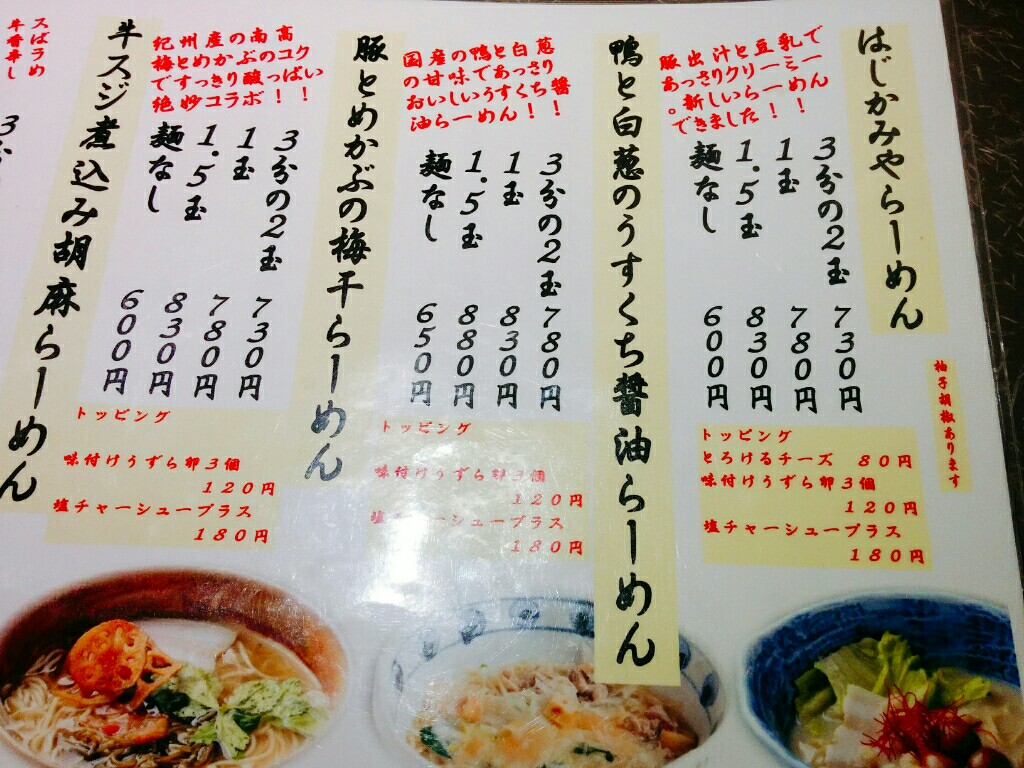 はじかみやらーめん
柚子胡椒あります
豚出汁と豆乳で
あっさりクリーミー
。新しいらーめん
できました！！
3分の2玉 730円
1玉 780円
1.5玉 830円
麺なし 600円
トッピング
とろけるチーズ 80円
味付けうずら卵3個
120円
塩チャーシュープラス
180円
鴨と白葱のうすくち醤油らーめん
国産の鴨と白葱
の甘味であっさり
おいしいうすくち醤
油らーめん！！
3分の2玉 780円
1玉 830円
1.5玉 880円
麺なし 650円
トッピング
味付けうずら卵3個
120円
塩チャーシュープラス
180円
豚とめかぶの梅干らーめん
紀州産の南高
梅とめかぶのコク
ですっきり酸っぱい
絶妙コラボ！！
3分の2玉 730円
1玉 780円
1.5玉 830円
麺なし 600円
トッピング
味付けうずら卵3個
120円
塩チャーシュープラス
180円
牛スジ煮込み胡麻らーめん